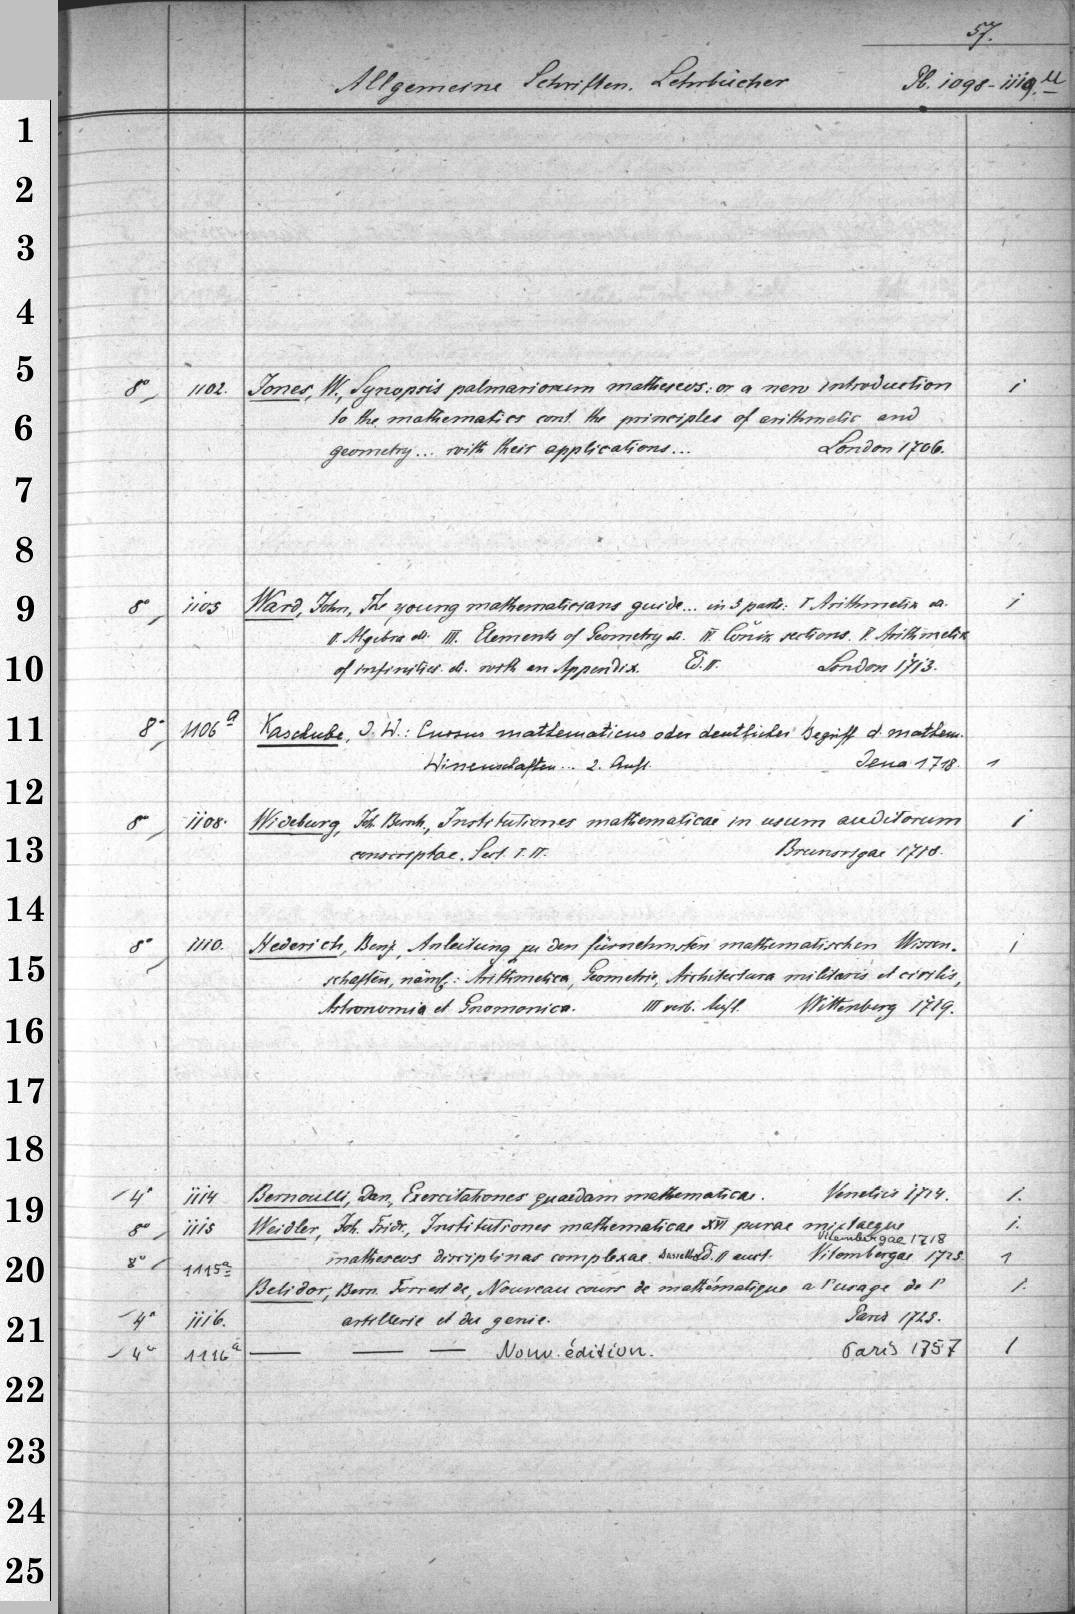 57.
Allgemeine Schriften. Lehrbücher Pl. 1098-1119.
8° 1102. Jones, W., Synopsis palmariorum matheseos: or a new introduction 1
to the mathematics cont. the principles of arithmetic and
geometry... with their applications... London 1706.
8° 1105 Ward, John, The young mathematicians guide... in 5 parts: I Arithmetik
II. Algebra III. Elements of Geometry IV. Conik sections. V. Arithmetik
of infinities with an Appendix. Ed. II. London 1713.
8° 1106a Kaschube, J. W.: Cursus mathematicus oder deutlicher Begriff d. mathem.
Wissenschaften... 2. Aufl. Jena 1718. 1
8° 1108. Wideburg, Joh. Bernh., Institutiones mathematicae in usum auditorum 1
conscriptae. Sect. I. II. Brunsvigae 1718.
8° 1110. Hederich, Benj., Anleitung zu den fürnehmsten mathematischen Wissen- 1
schaften, näml.: Arithmetica, Geometrie, Architectura militaris et civilis,
Astronomia et Gnomonica. III verb. Aufl. Wittenberg 1719.
4° 1114 Bernoulli, Dan., Exercitationes quaedam mathematicae. Venetiis 1724. 1.
8° 1115 Weidler, Joh. Fridr., Institutiones mathematicae XVI purae mixtaeque 1.
Vitembergae 1718
8° 1115a matheseos disciplinas complexae. Dasselbe Ed. II auct. Vitembergae 1725 1
Belidor, Bern. Forrest de, Nouveau cours de mathématique a l'usage de l' 1.
4° 1116. artillerie et du genie. Paris 1725.
4° 1116a — — — Nouv. édition. Paris 1757 1
1
2
3
4
5
6
7
8
9
10
11
12
13
14
15
16
17
18
19
20
21
22
23
24
25